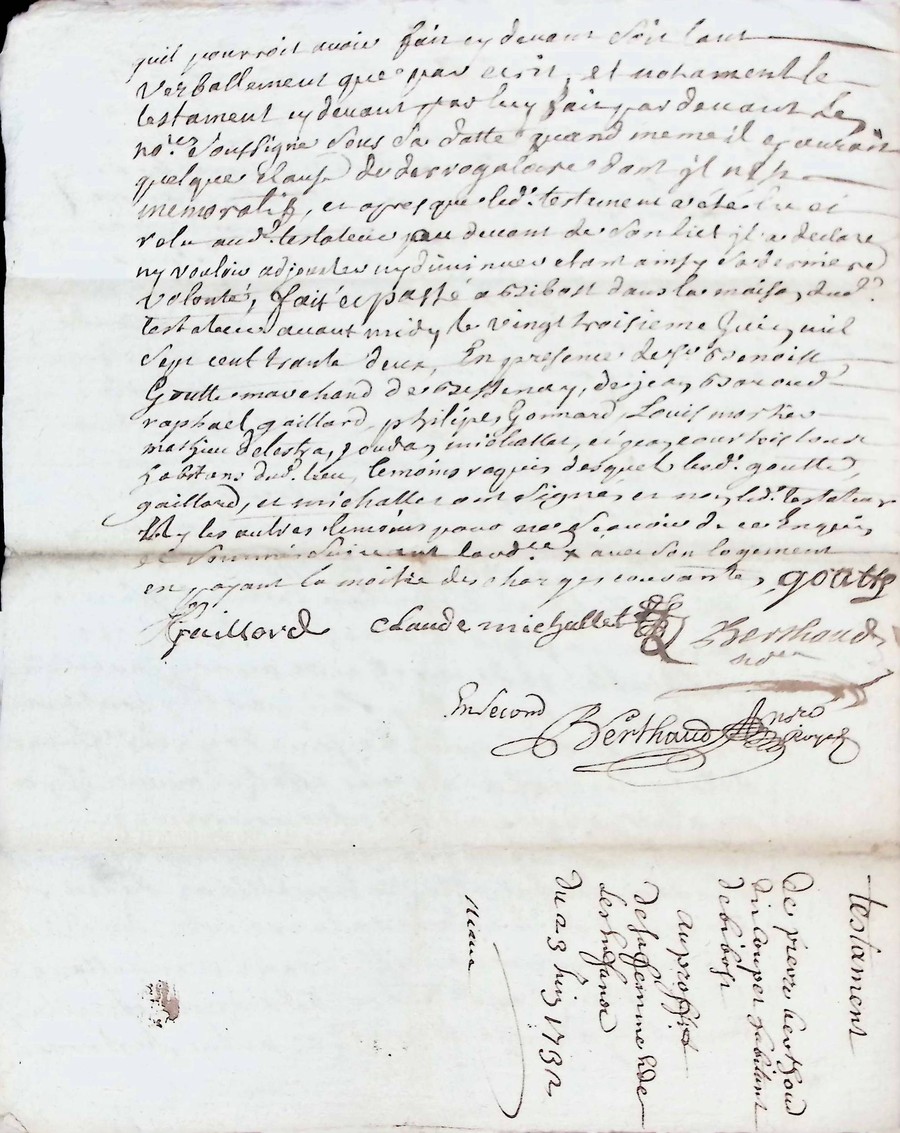 quil pourroit avoir fait cy devant soit tant
verballement que par ecrit, et notament le
testament cy devant par luy fait par devant le
no.re soussigné sous sa datte quand meme il y auroit
quelque clause de derrogatoire dont il n'est
memoratif, et apres que led. testament a été lu et
relu aud. testateur par devant de son lict il a declaré
ny vouloir adjouter ny diminuer etant ainsy sa derniere
volonté, fait et passé a bibost dans la maison dud.
testateur avant midy le vingt troisieme juin mil
sept cent trante deux, En presence de sr benoist
Goutte marchand de bessenay, de jean
raphael gaillard, philipe Gonnard, Louis
mathieu delestra, michallet, et tous
habitans dud. lieu, temoins requis desquels led. goutte
gaillard, et michallet ont signés et non led. testateur
ny les autres temoins pour ne scavoir de ce Enquis
et sommés suivant lord.ce x avec son logement
en payant la moitié des charges courantes, goutte
Gaillard claude michallet Berthaud
no.re
En second
Berthaud no.re Royal
testament
de pierre berthoud
du couper habitant
de bibost
au proffit
de sa femme & de
ses enfans
du 23 juin 1732